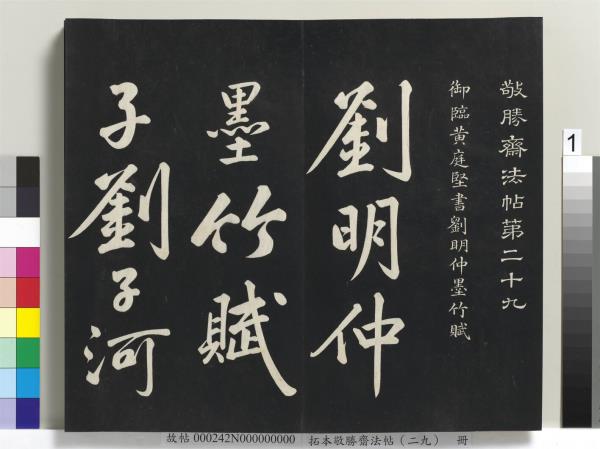 敬勝齋法帖第二十九
御臨黃庭堅書劉明仲墨竹賦
劉明仲
墨竹賦
子劉子河
1
故帖 000242N000000000 拓本敬勝齋法帖（二九） 冊